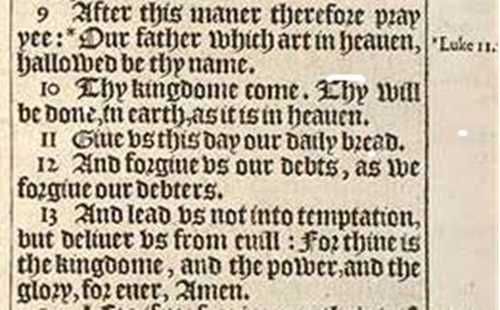 9 After this maner therefore pray
yee: *Our father which art in heauen, *Luke 11.
hallowed be thy name.
10 Thy kingdome come. Thy will
be done, in earth, as it is in heauen.
11 Giue vs this day our daily bread.
12 And forgiue vs our debts, as we
forgiue our debters.
13 And lead vs not into temptation,
but deliuer vs from euill : For thine is
the kingdome, and the power, and the
glory, for euer, Amen.